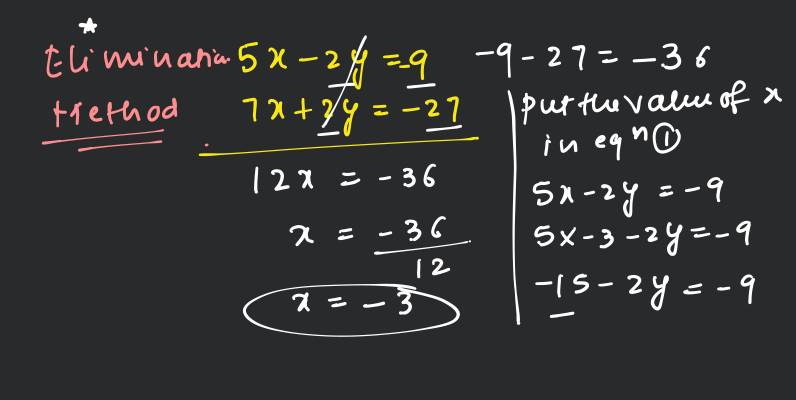 Elimination 5x - 2y = -9
Method 7x + 2y = -27
12x = -36
x = -36/12
x = -3
-9 - 27 = -36
put the value of x
in eqn ①
5x - 2y = -9
5x - 3 - 2y = -9
-15 - 2y = -9